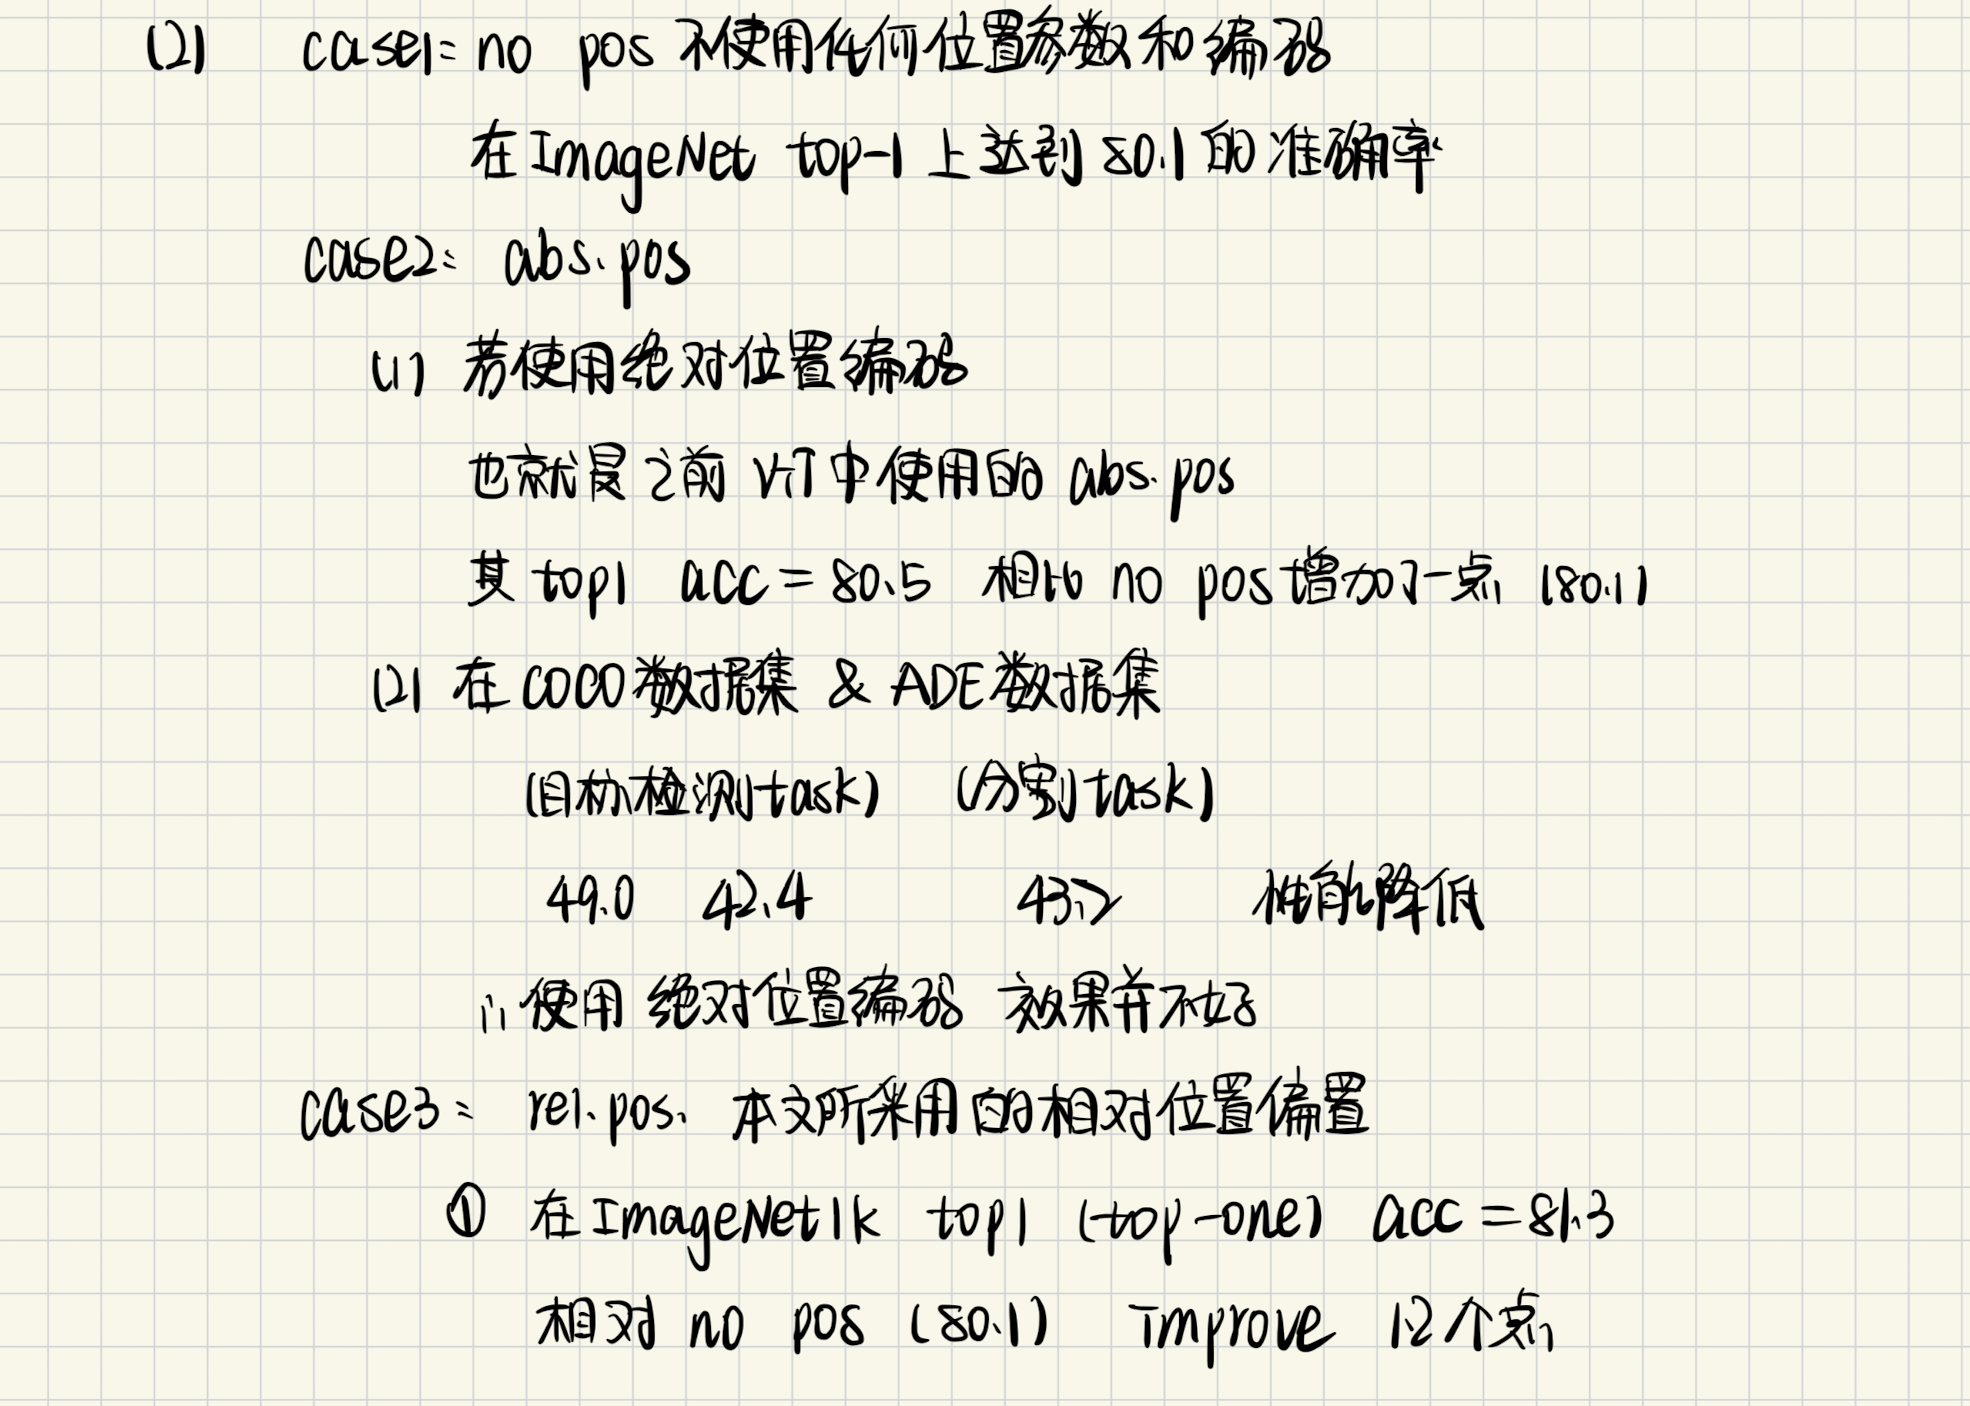 (2) case1: no pos 不使用任何位置参数和编码
在ImageNet top-1 上达到 80.1 的准确率
case2: abs.pos
(1) 若使用绝对位置编码
也就是之前 ViT中使用的 abs.pos
其 top1 acc = 80.5 相比 no pos增加了一点 (80.1)
(2) 在COCO数据集 & ADE数据集
(目标检测task) (分割task)
49.0 42.4 43.2 性能降低
∴使用 绝对位置编码 效果并不好
case3: rel.pos. 本文所采用的相对位置偏置
① 在ImageNet1k top1 (top-one) acc = 81.3
相对 no pos (80.1) improve 1.2个点